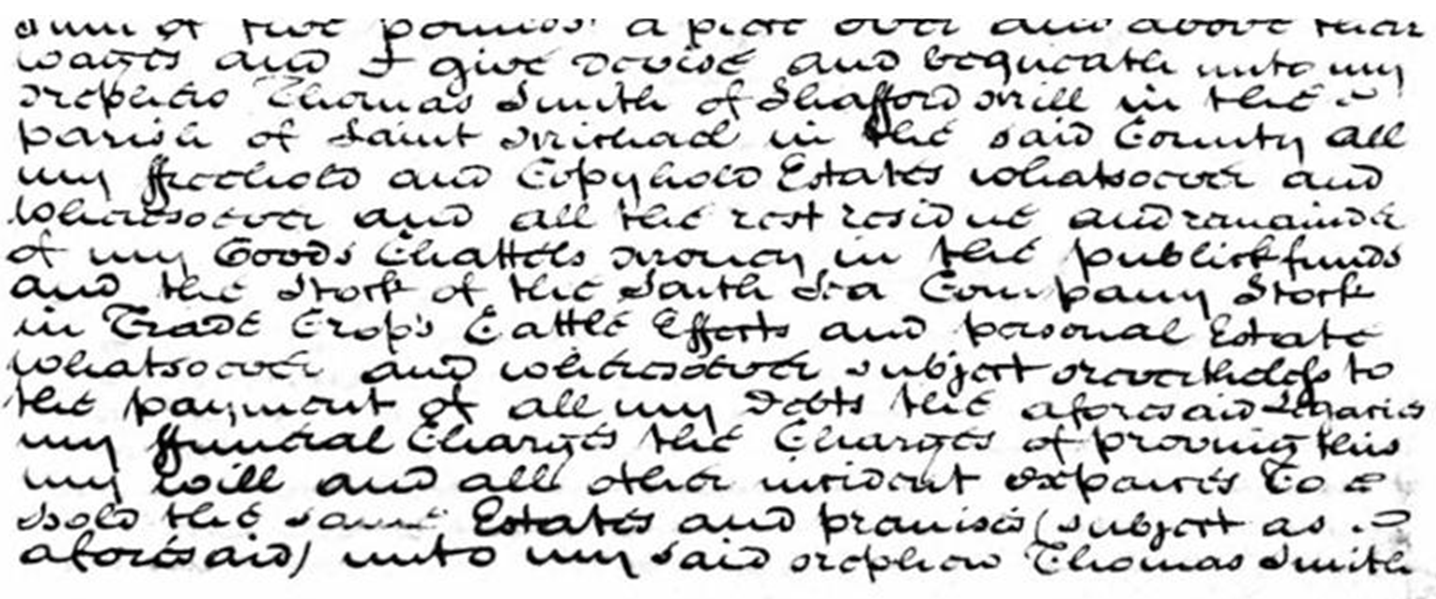 sum of five pounds a piece over and above their
wages and I give devise and bequeath unto my
nephew Thomas Smith of Shafford Mill in the
parish of Saint Michael in the said County all
my ffreehold and Copyhold Estates whatsoever and
wheresoever and all the rest residue and remainder
of my Goods Chattels money in the publick funds
and the Stock of the South Sea Company Stock
in Trade Crops Cattle Effects and personal Estate
whatsoever and wheresoever subject nevertheless to
the payment of all my Debts the aforesaid Legacies
my ffuneral Charges the Charges of proving this
my Will and all other incident expences To
hold the same Estates and premises (subject as
aforesaid) unto my said nephew Thomas Smith